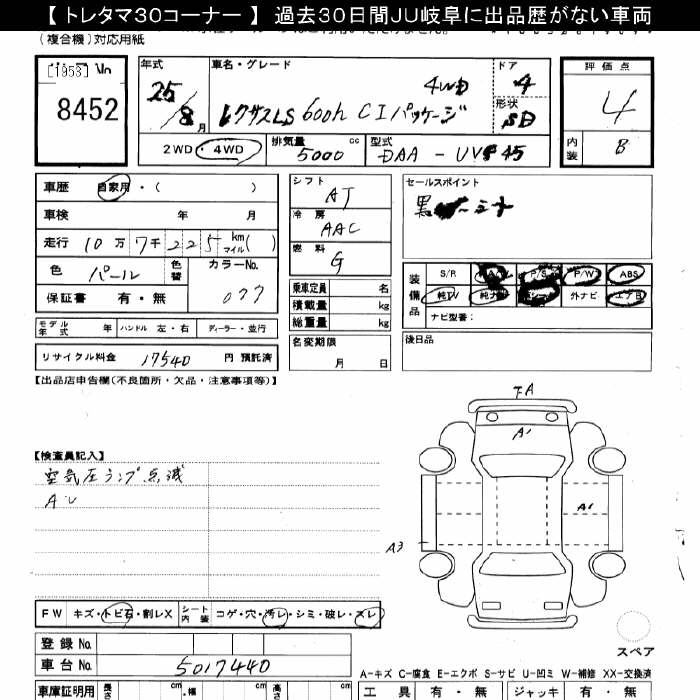 【 トレタマ30コーナー 】 過去30日間JU岐阜に出品歴がない車両
(複合機)対応用紙
[1953] No
8452
年式 車名・グレード ドア 評価点
25/8月 レクサスLS 600h CIパッケージ 4WD 4 4
形状 SD
2WD・4WD 排気量 5000 cc 型式 DAA - UVF45 内装 B
車歴 自家用・( )
車検 年 月
走行 10万7千225 km マイル( )
色 パール 色替 カラーNo. 077
保証書 有・無
シフト AT
冷房 AAC
燃料 G
乗車定員 名
積載量 kg
総重量 kg
セールスポイント
黒
装備品 S/R P/S P/W ABS
純TV 純ナビ 外ナビ エアB
ナビ型番:
モデル年式 年 ハンドル 左・右 ディーラー・並行
名変期限 月 日
後日品
リサイクル料金 17540 円 預託済
【出品店申告欄(不良箇所・欠品・注意事項等)】
FA
A1
【検査員記入】
空気圧ランプ点滅
AU
A1
A3
FW キズ・トビ石・割レX シート内装 コゲ・穴・汚レ・シミ・破レ・スレ
登録 No.
車台 No. 5017440
スペア
A-キズ C-腐食 E-エクボ S-サビ U-凹ミ W-補修 XX-交換済
車庫証明用 長さ cm ・幅 cm 高さ cm 工具 有・無 ジャッキ 有・無